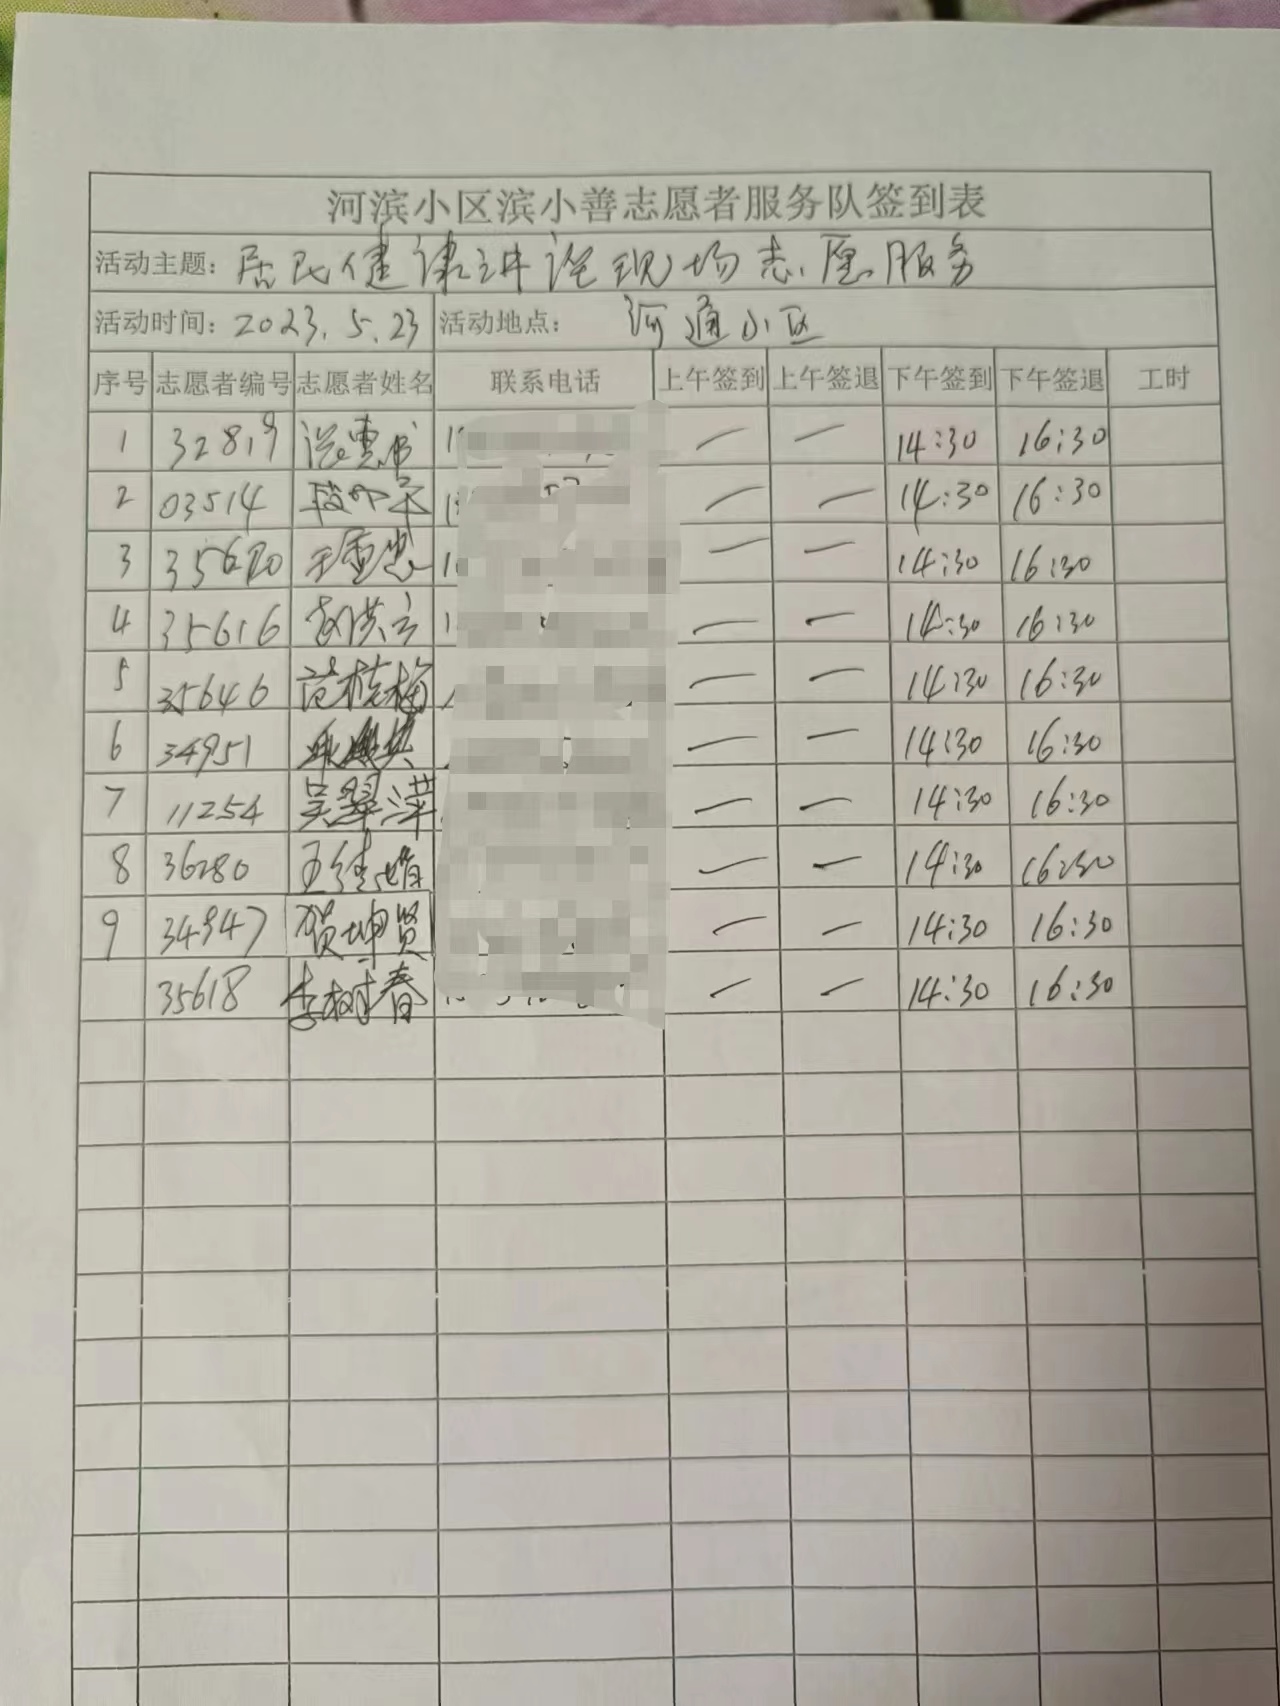 河滨小区滨小善志愿者服务队签到表
活动主题: 居民健康讲说现场志愿服务
活动时间: 2023.5.23 活动地点: 河通小区
序号 志愿者编号 志愿者姓名 联系电话 上午签到 上午签退 下午签到 下午签退 工时
1 32819 — — 14:30 16:30
2 03514 — — 14:30 16:30
3 — — 14:30 16:30
4 35616 — — 14:30 16:30
5 35646 范桂梅 — — 14:30 16:30
6 34951 — — 14:30 16:30
7 11254 吴翠萍 — — 14:30 16:30
8 36280 — — 14:30 16:30
9 34947 贺坤贤 — — 14:30 16:30
35618 李树春 — — 14:30 16:30